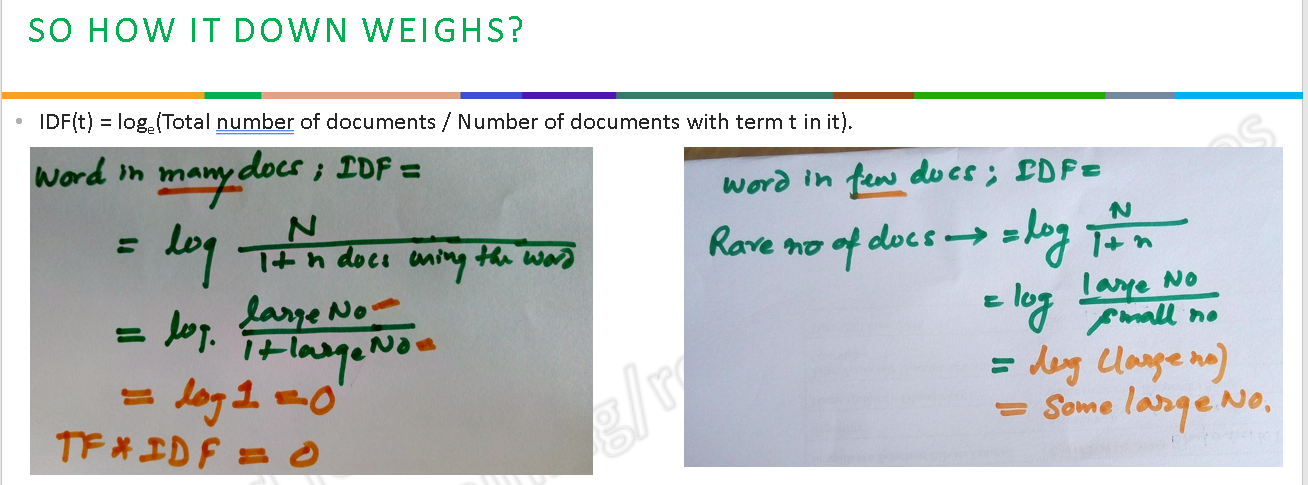 SO HOW IT DOWN WEIGHS?
• IDF(t) = logₑ(Total number of documents / Number of documents with term t in it).
word in many docs ; IDF =
= log N / 1 + n docs using the word
= log. large No / 1 + large No
= log 1 = 0
TF * IDF = 0
word in few docs ; IDF =
Rare no of docs → = log N / 1 + n
= log large No / small no
= log (large no)
= Some large No.